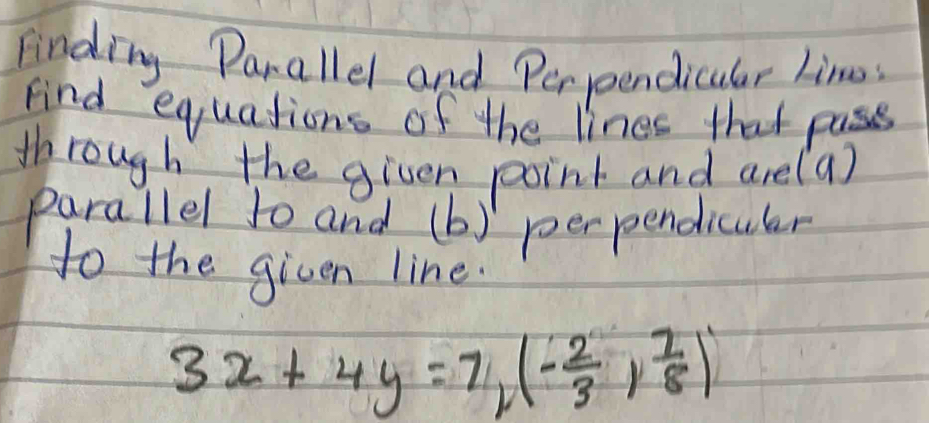 Finding Parallel and Perpendicular Lines:
Find equations of the lines that pass
through the given point and are (a)
parallel to and (b) perpendicular
to the given line.
3x + 4y = 7, (-2/3, 7/8)